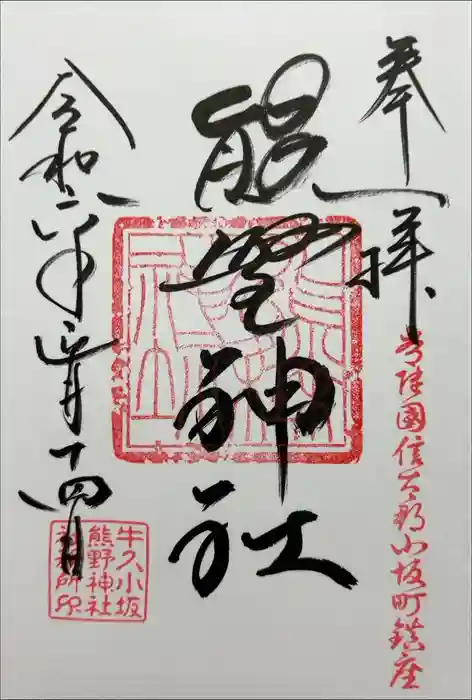 奉拝
常陸國信太郡小坂町鎮座
熊埜神社
令和六年正月十四日
牛久小坂
熊野神社
社務所印